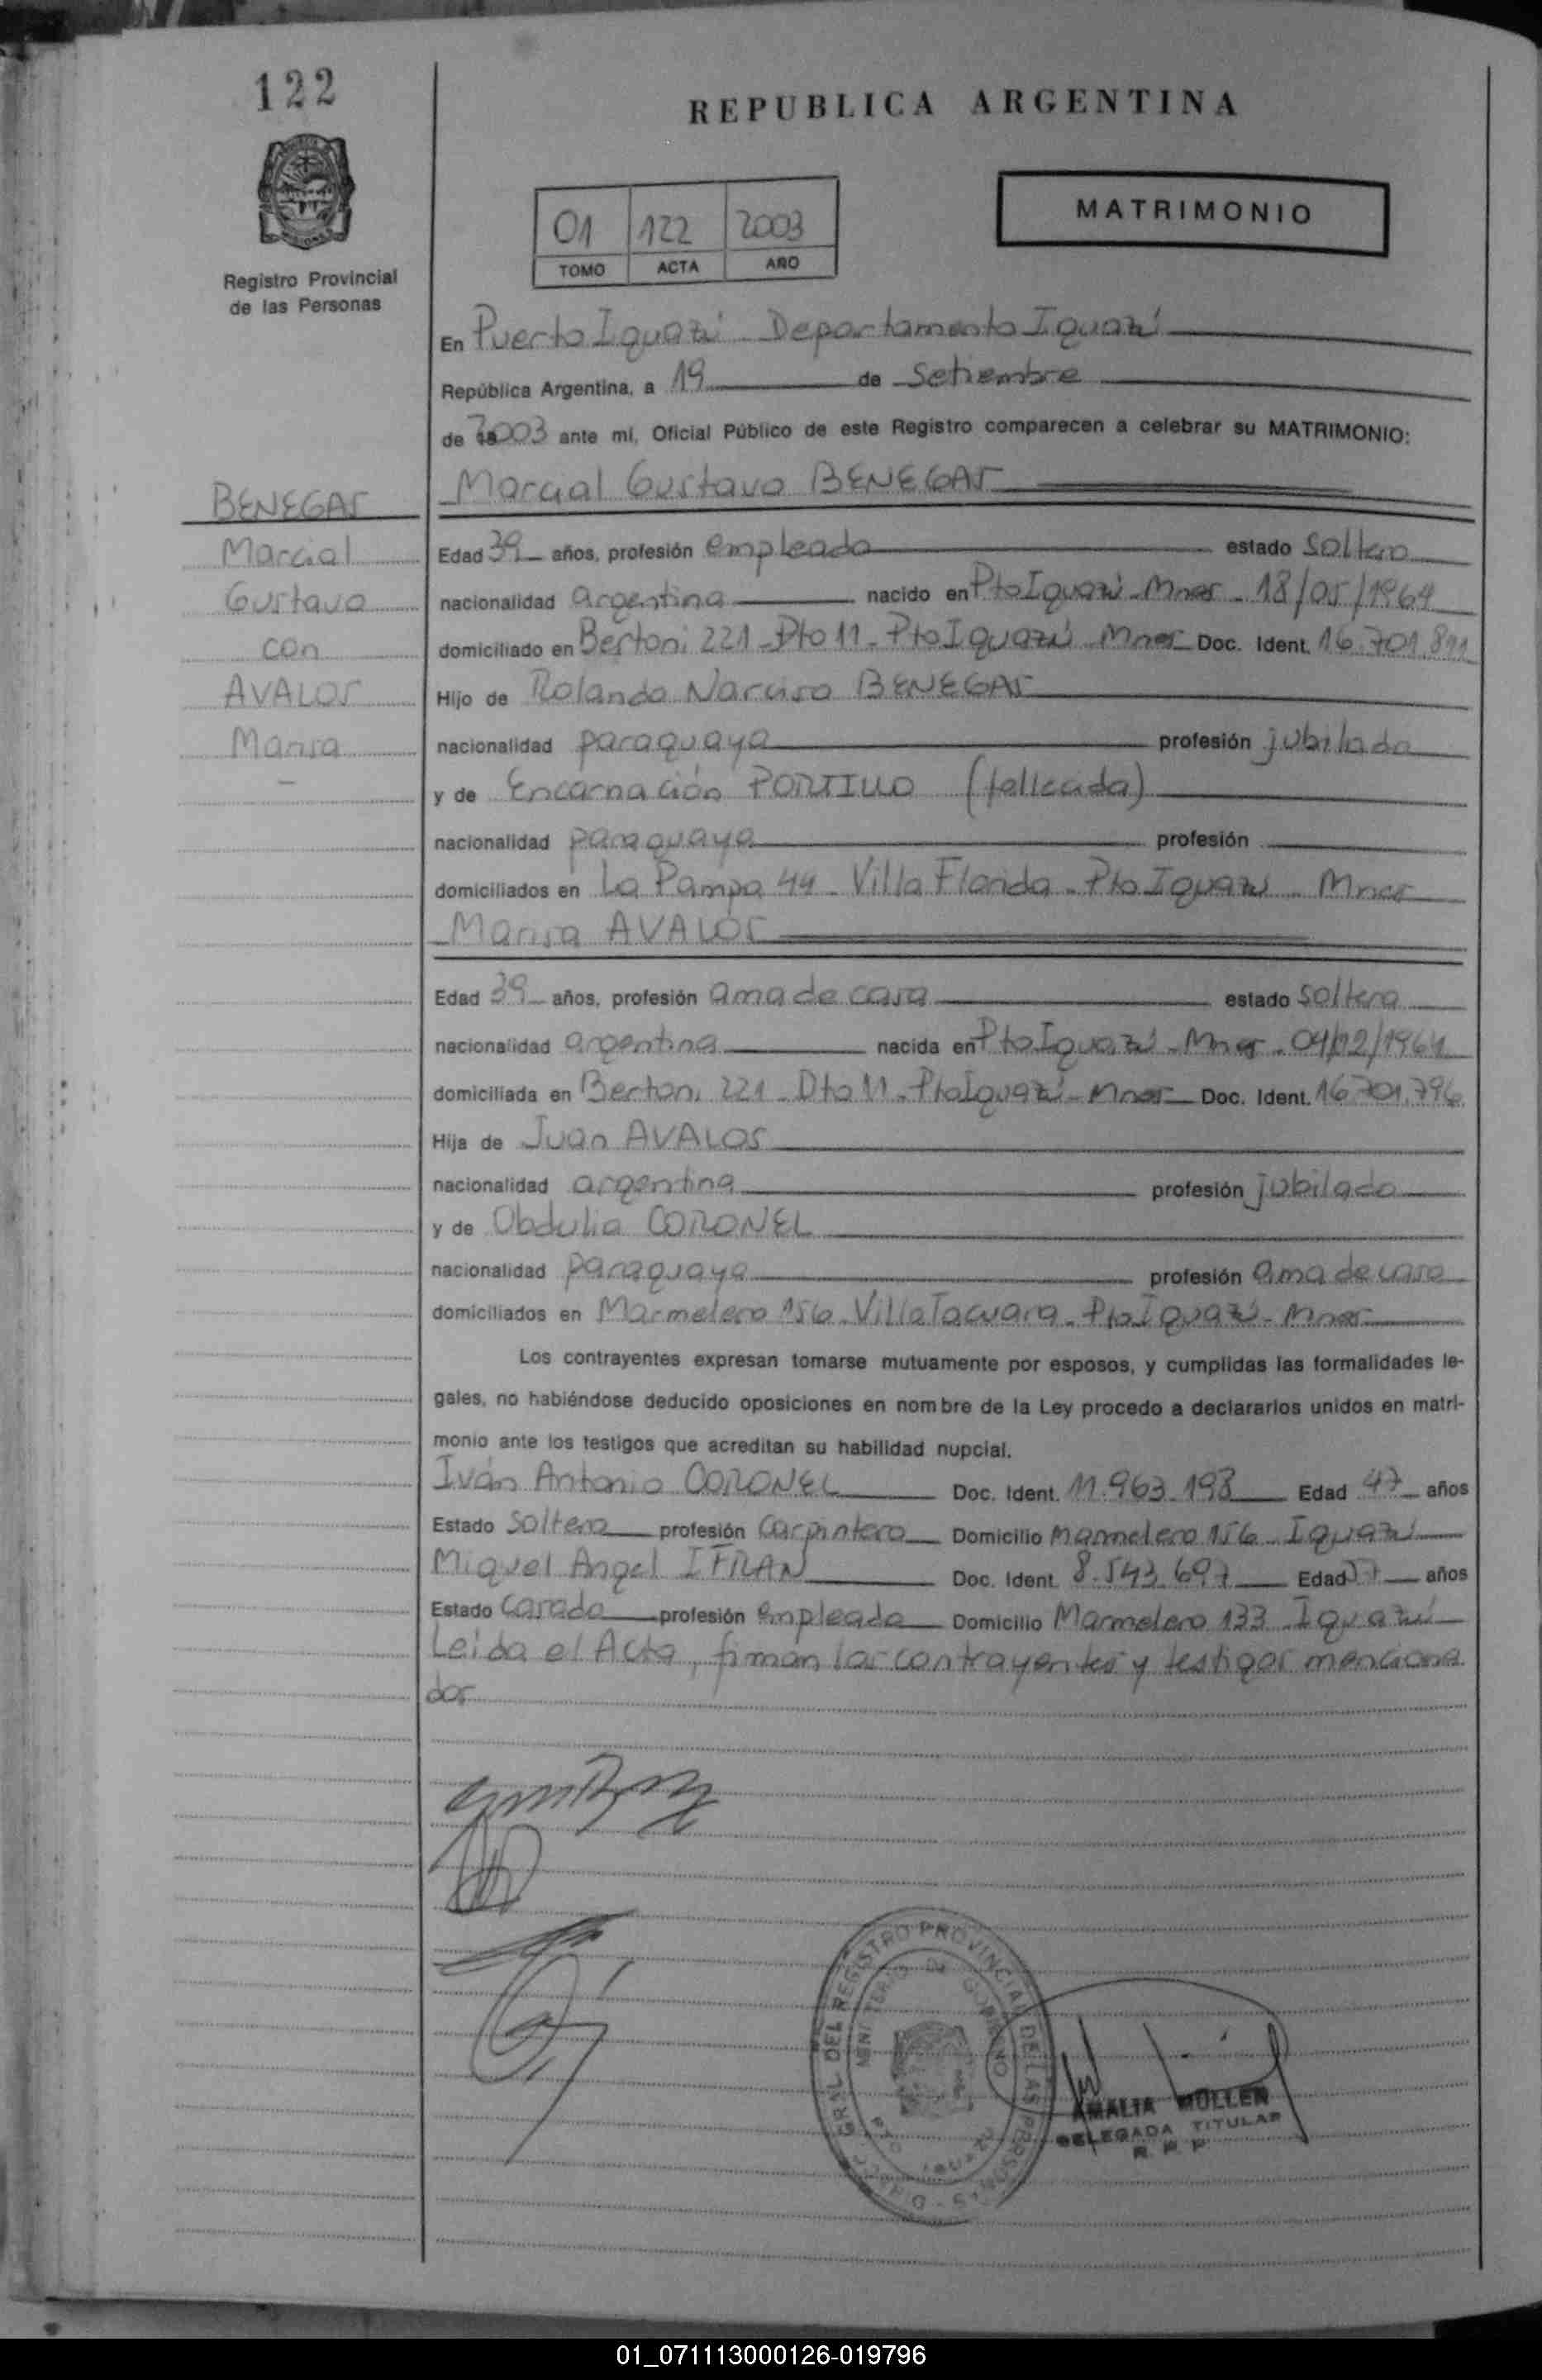 122
REPUBLICA ARGENTINA
MATRIMONIO
01 122 2003
TOMO ACTA AÑO
Registro Provincial
de las Personas
En Puerto Iguazú - Departamento Iguazú
República Argentina, a 19 de Setiembre
de 2003 ante mí, Oficial Público de este Registro comparecen a celebrar su MATRIMONIO:
Marcial Gustavo BENEGAS
BENEGAS
Marcial
Gustavo
con
AVALOS
Marisa
Edad 39 años, profesión empleado estado soltero
nacionalidad argentina nacido en Pto Iguazú - Mnes - 18/05/1964
domiciliado en Bertoni 221 - Dto 11 - Pto Iguazú - Mnes Doc. Ident. 16.701.891
Hijo de Rolando Narciso BENEGAS
nacionalidad paraguaya profesión jubilado
y de Encarnación PORTILLO (fallecida)
nacionalidad paraguaya profesión
domiciliados en La Pampa 44 - Villa Florida - Pto Iguazú - Mnes
Marisa AVALOS
Edad 39 años, profesión ama de casa estado soltera
nacionalidad argentina nacida en Pto Iguazú - Mnes - 04/12/1964
domiciliada en Bertoni 221 - Dto 11 - Pto Iguazú - Mnes Doc. Ident. 16.701.796
Hija de Juan AVALOS
nacionalidad argentina profesión jubilado
y de Obdulia CORONEL
nacionalidad paraguaya profesión ama de casa
domiciliados en Marmelero 156 - Villa Tacuara - Pto Iguazú - Mnes
Los contrayentes expresan tomarse mutuamente por esposos, y cumplidas las formalidades le-
gales, no habiéndose deducido oposiciones en nombre de la Ley procedo a declararlos unidos en matri-
monio ante los testigos que acreditan su habilidad nupcial.
Iván Antonio CORONEL Doc. Ident. 11.963.198 Edad 47 años
Estado soltero profesión carpintero Domicilio Marmelero 156 - Iguazú
Miguel Angel IFRAN Doc. Ident. 8.543.697 Edad años
Estado Casado profesión empleado Domicilio Marmelero 133 - Iguazú
Leida el Acta, firman los contrayentes y testigos menciona
dos
GRAL DEL REGISTRO PROVINCIAL DE LAS PERSONAS
MINISTERIO DE GOBIERNO
AMALIA MULLER
DELEGADA TITULAR
R. P. P.
01_071113000126-019796